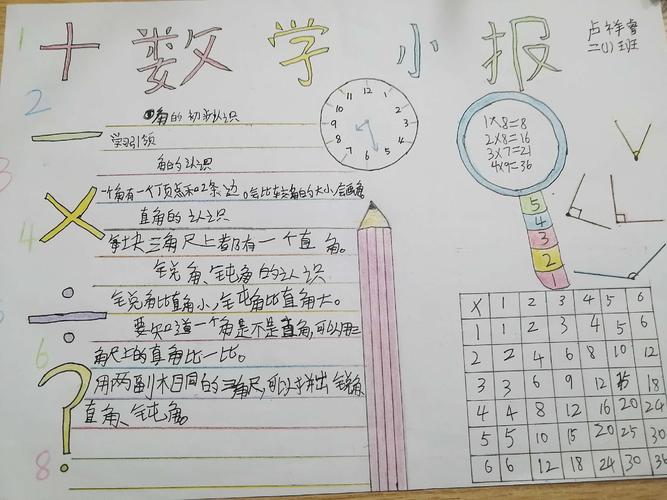 + 数学小报
卢梓睿
二(1)班
角的初步认识
学习引领
角的认识
一个角有一个顶点和2条边。会比较角的大小,会画角
直角的认识
每块三角尺上都有一个直角。
锐角、钝角的认识
锐角比直角小,钝角比直角大。
要知道一个角是不是直角,可以用三
角尺上的直角比一比。
用两副相同的三角尺,可以拼出锐角
直角、钝角。
1
2
3
4
6
8
−
×
÷
?
12 1 2 3 4 5 6 7 8 9 10 11
1×8=8
2×8=16
3×7=21
4×9=36
5
4
3
2
1
× 1 2 3 4 5 6
1 1 2 3 4 5 6
2 2 4 6 8 10 12
3 3 6 9 12 15 18
4 4 8 12 16 20 24
5 5 10 15 20 25 30
6 6 12 18 24 30 36